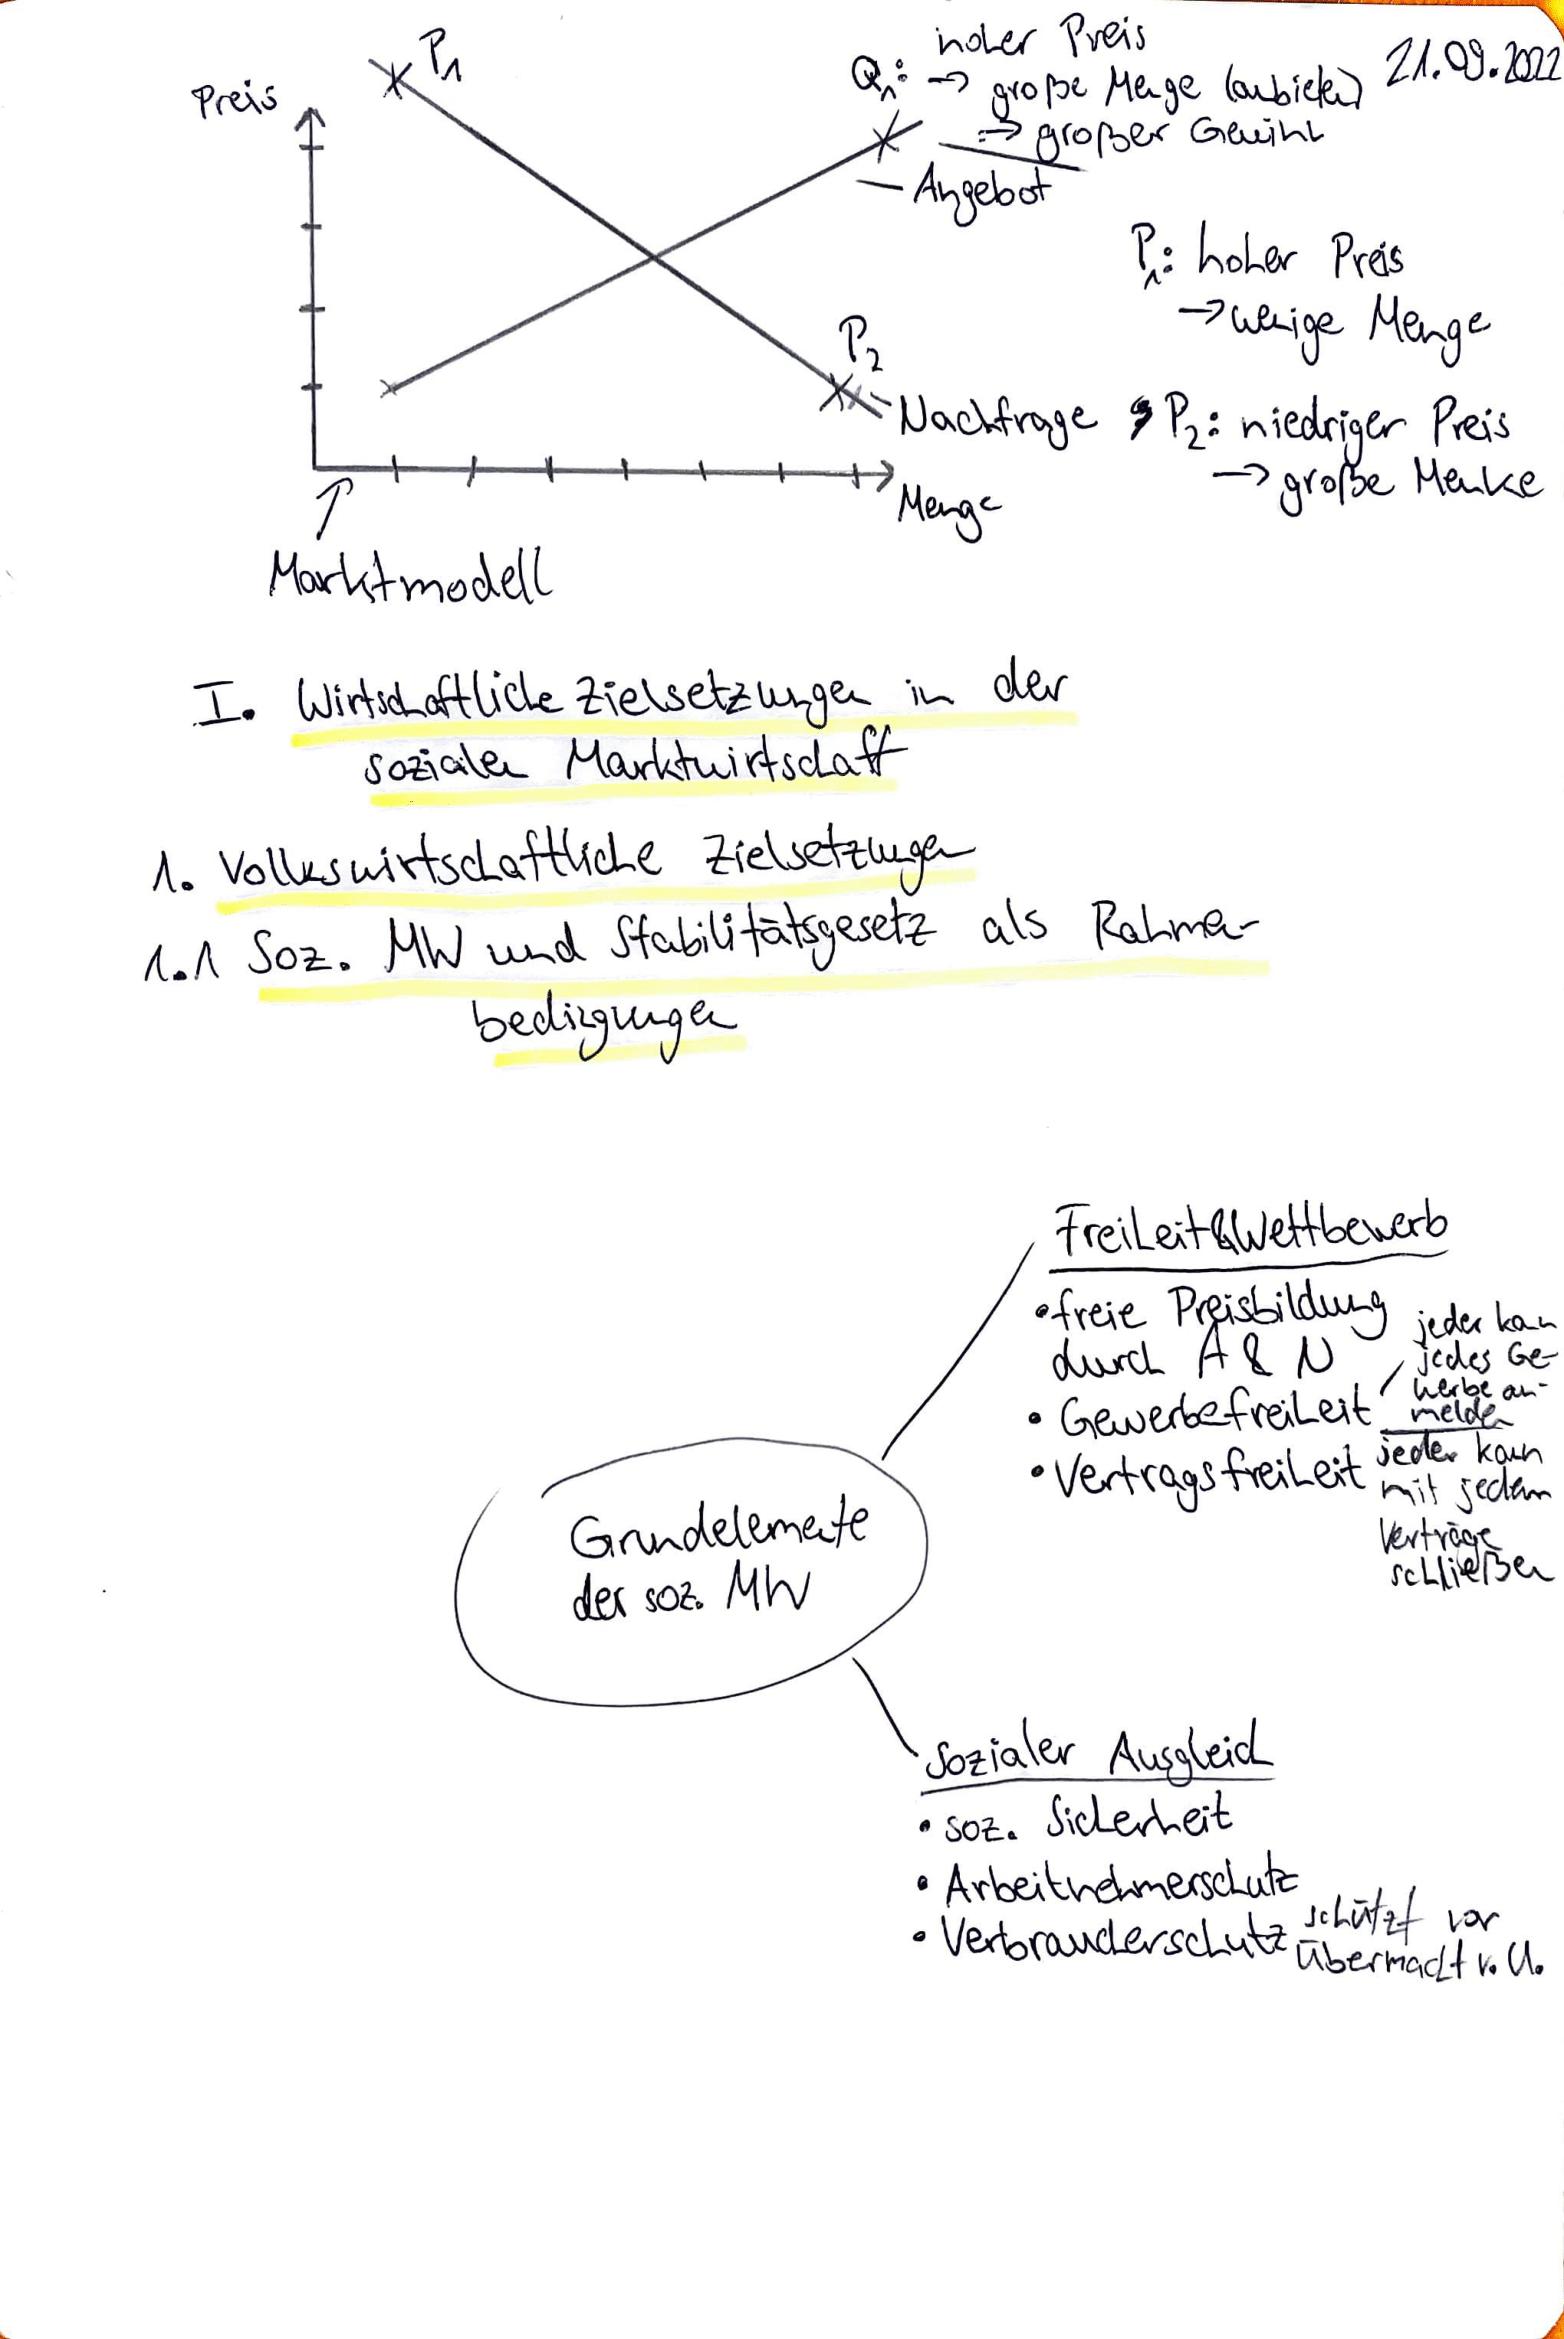 21.09.2022
Preis
P₁
Q₁: hoher Preis
→ große Menge (anbieten)
⇒ großer Gewinn
Angebot
P₁: hoher Preis
→ wenige Menge
P₂
Nachfrage
P₂: niedriger Preis
→ große Menke
Menge
Marktmodell
I. Wirtschaftliche Zielsetzungen in der
sozialen Marktwirtschaft
1. Volkswirtschaftliche Zielsetzungen
1.1 Soz. MW und Stabilitätsgesetz als Rahmen-
bedingungen
Grundelemente
der soz. MW
Freiheit & Wettbewerb
• freie Preisbildung
durch A & N
• Gewerbefreiheit
jeder kann
jedes Ge-
werbe an-
melden
• Vertragsfreiheit
jeder kann
mit jedem
Verträge
schließen
Sozialer Ausgleich
• soz. Sicherheit
• Arbeitnehmerschutz
• Verbraucherschutz
schützt vor
Übermacht v. U.